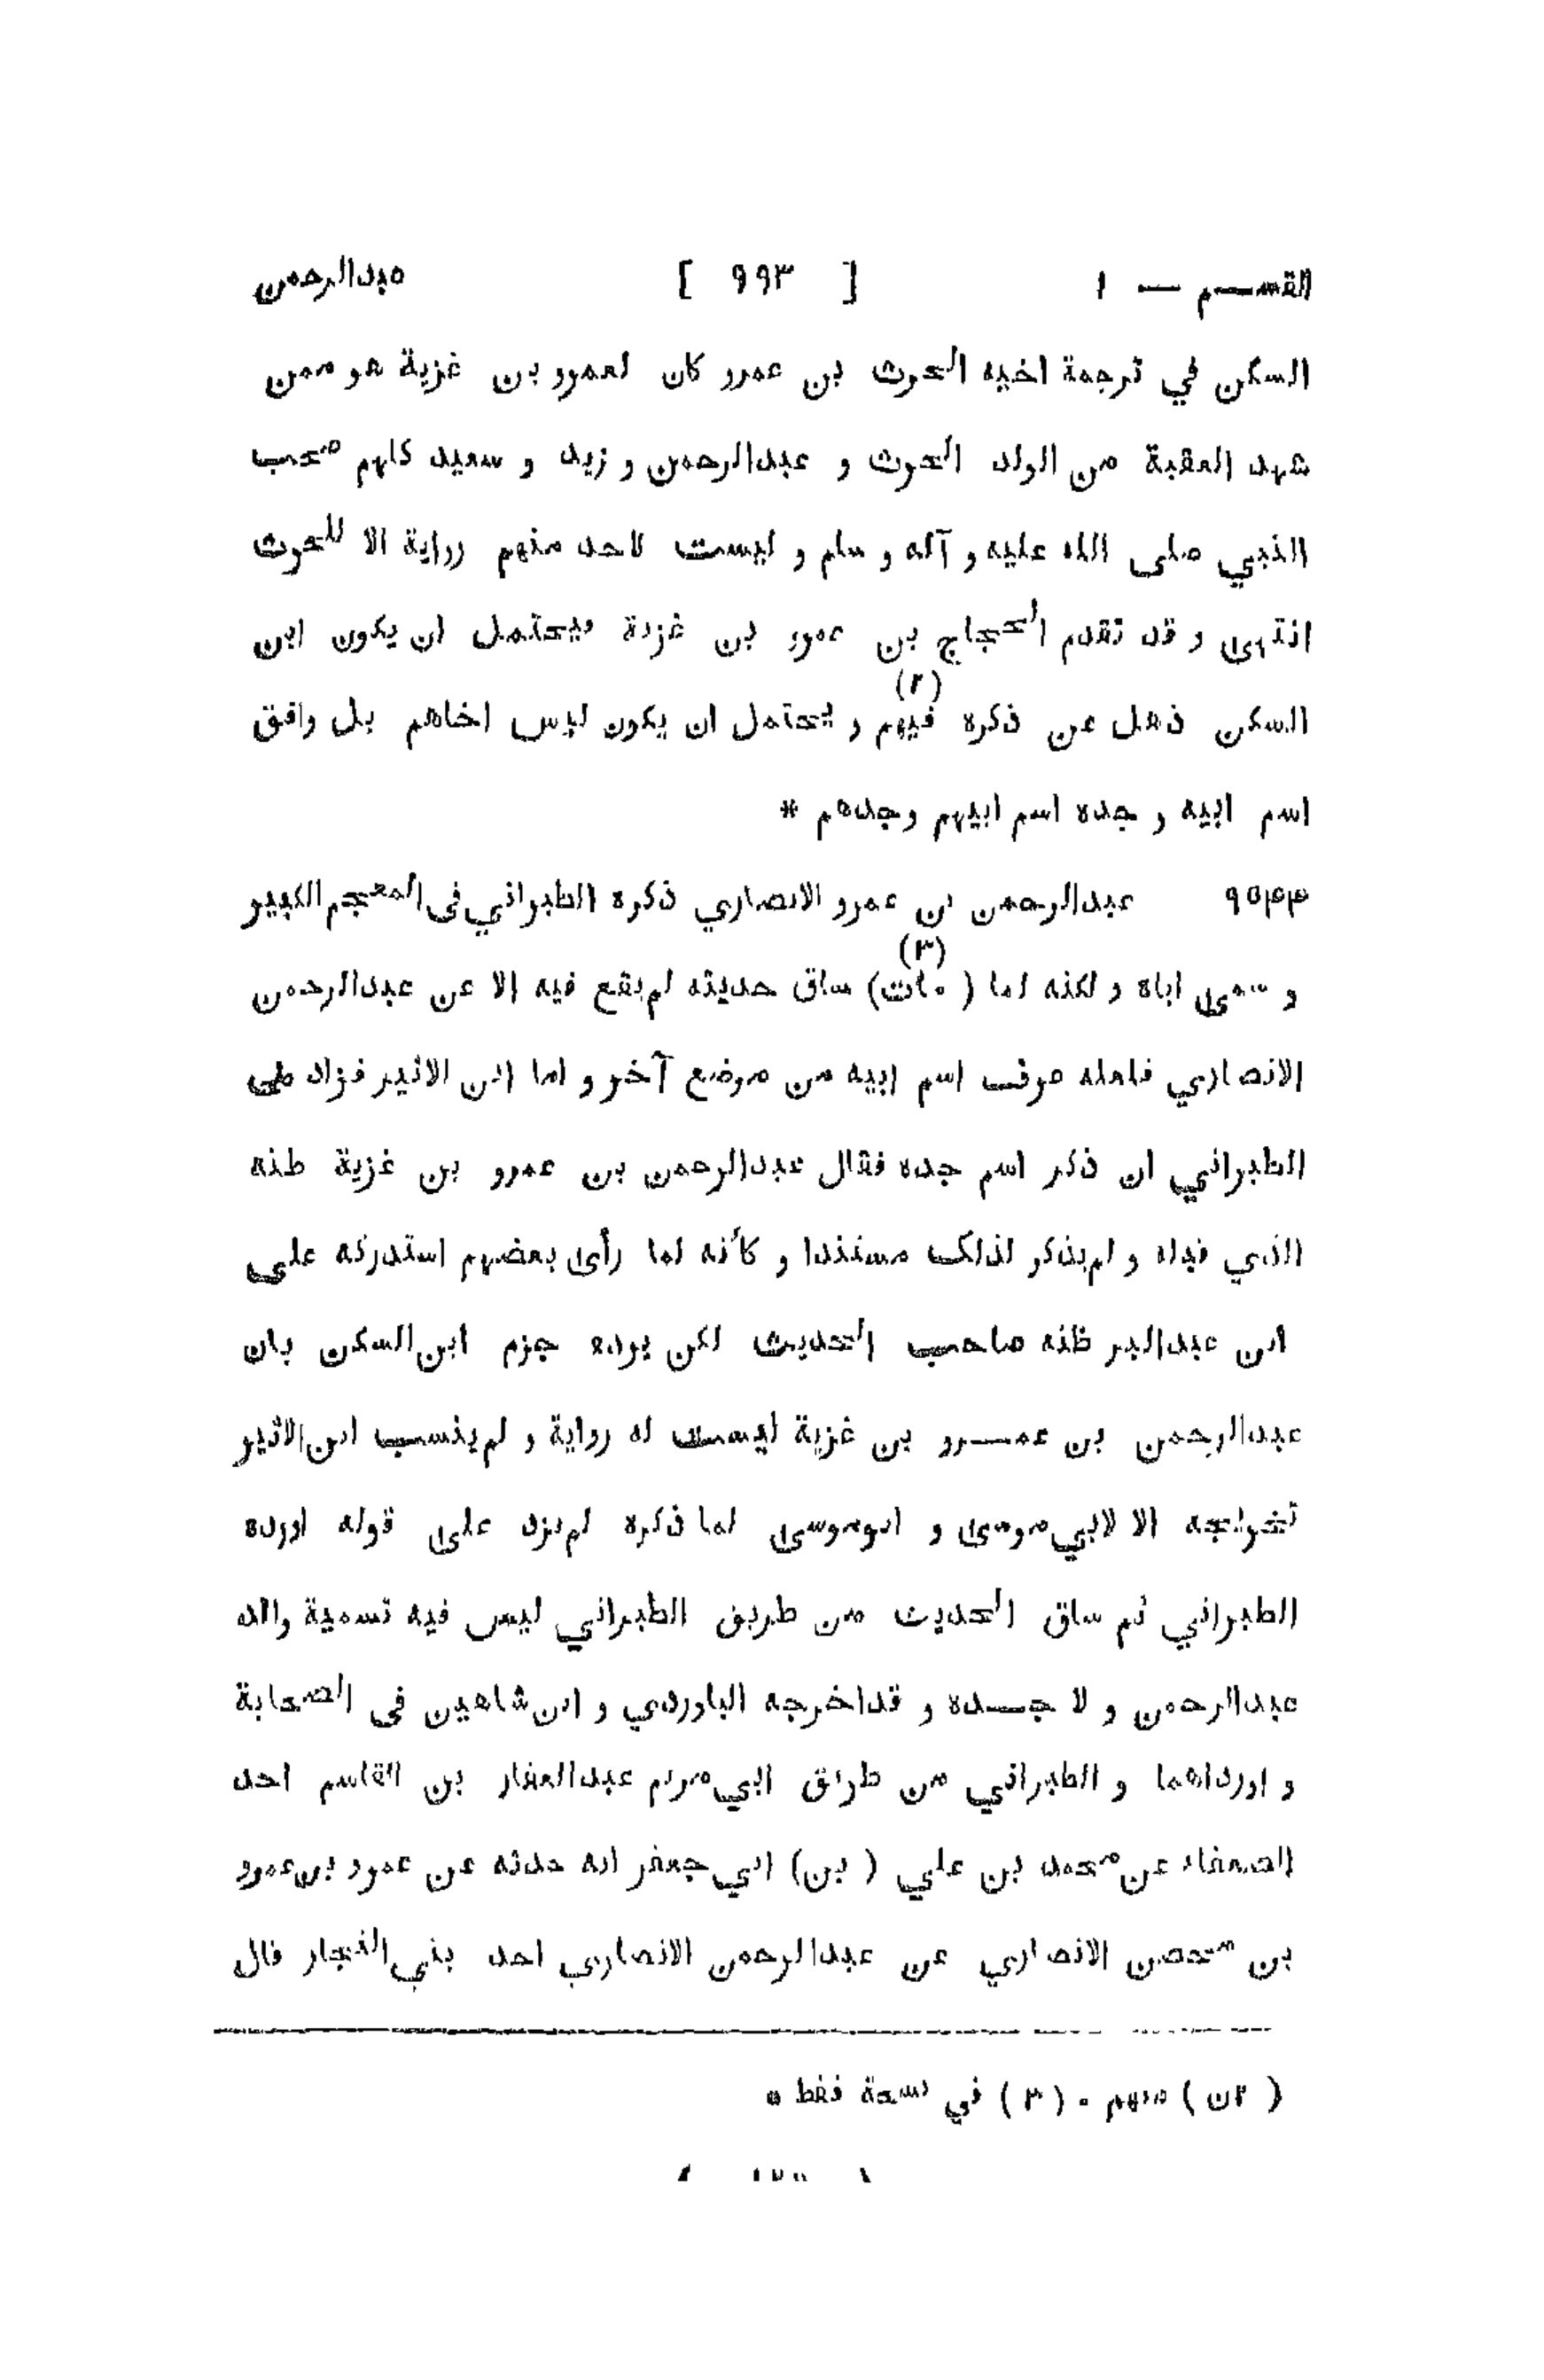 القسم — ١ [ ٩٩٣ ] عبدالرحمن
السكن في ترجمة اخيه الحرث بن عمرو كان لعمرو بن غزية هو ممن
شهد العقبة من الولد الحرث و عبدالرحمن و زيد و سعيد كلهم صحب
النبي صلى الله عليه و آله و سلم و ليست لاحد منهم رواية الا للحرث
انتهى و قد تقدم الحجاج بن عمرو بن غزية فيحتمل ان يكون ابن
السكن ذهل عن ذكره فيهم (٢) و يحتمل ان يكون ليس اخاهم بل وافق
اسم ابيه و جده اسم ابيهم وجدهم *
٩٥۴۴ عبدالرحمن بن عمرو الانصاري ذكره الطبراني فى المعجم الكبير
و سمى اباه و لكنه لما ( مات) (٣) ساق حديثه لم يقع فيه الا عن عبدالرحمن
الانصاري فلعله عرف اسم ابيه من موضع آخر و اما ابن الاثير فزاد على
الطبراني ان ذكر اسم جده فقال عبدالرحمن بن عمرو بن غزية ظنه
الذي قبله و لم يذكر لذلك مستندا و كأنه لما رأى بعضهم استدركه على
ابن عبدالبر ظنه صاحب الحديث لكن يرده جزم ابن السكن بان
عبدالرحمن بن عمرو بن غزية ليست له رواية و لم ينسب ابن الاثير
تخريجه الا لابي موسى و ابوموسى لما ذكره لم يزد على قوله اورده
الطبراني ثم ساق الحديث من طريق الطبراني ليس فيه تسمية والد
عبدالرحمن و لا جده و قداخرجه الباوردي و ابن شاهين فى الصحابة
و اورداهما و الطبراني من طريق ابي مريم عبدالغفار بن القاسم احد
الضعفاء عن محمد بن علي ( بن) ابي جعفر انه حدثه عن عمرو بن عمرو
بن محصن الانصاري عن عبدالرحمن الانصاري احد بني النجار قال
( ٢ن ) منهم . ( ٣ ) في نسخة فقط *